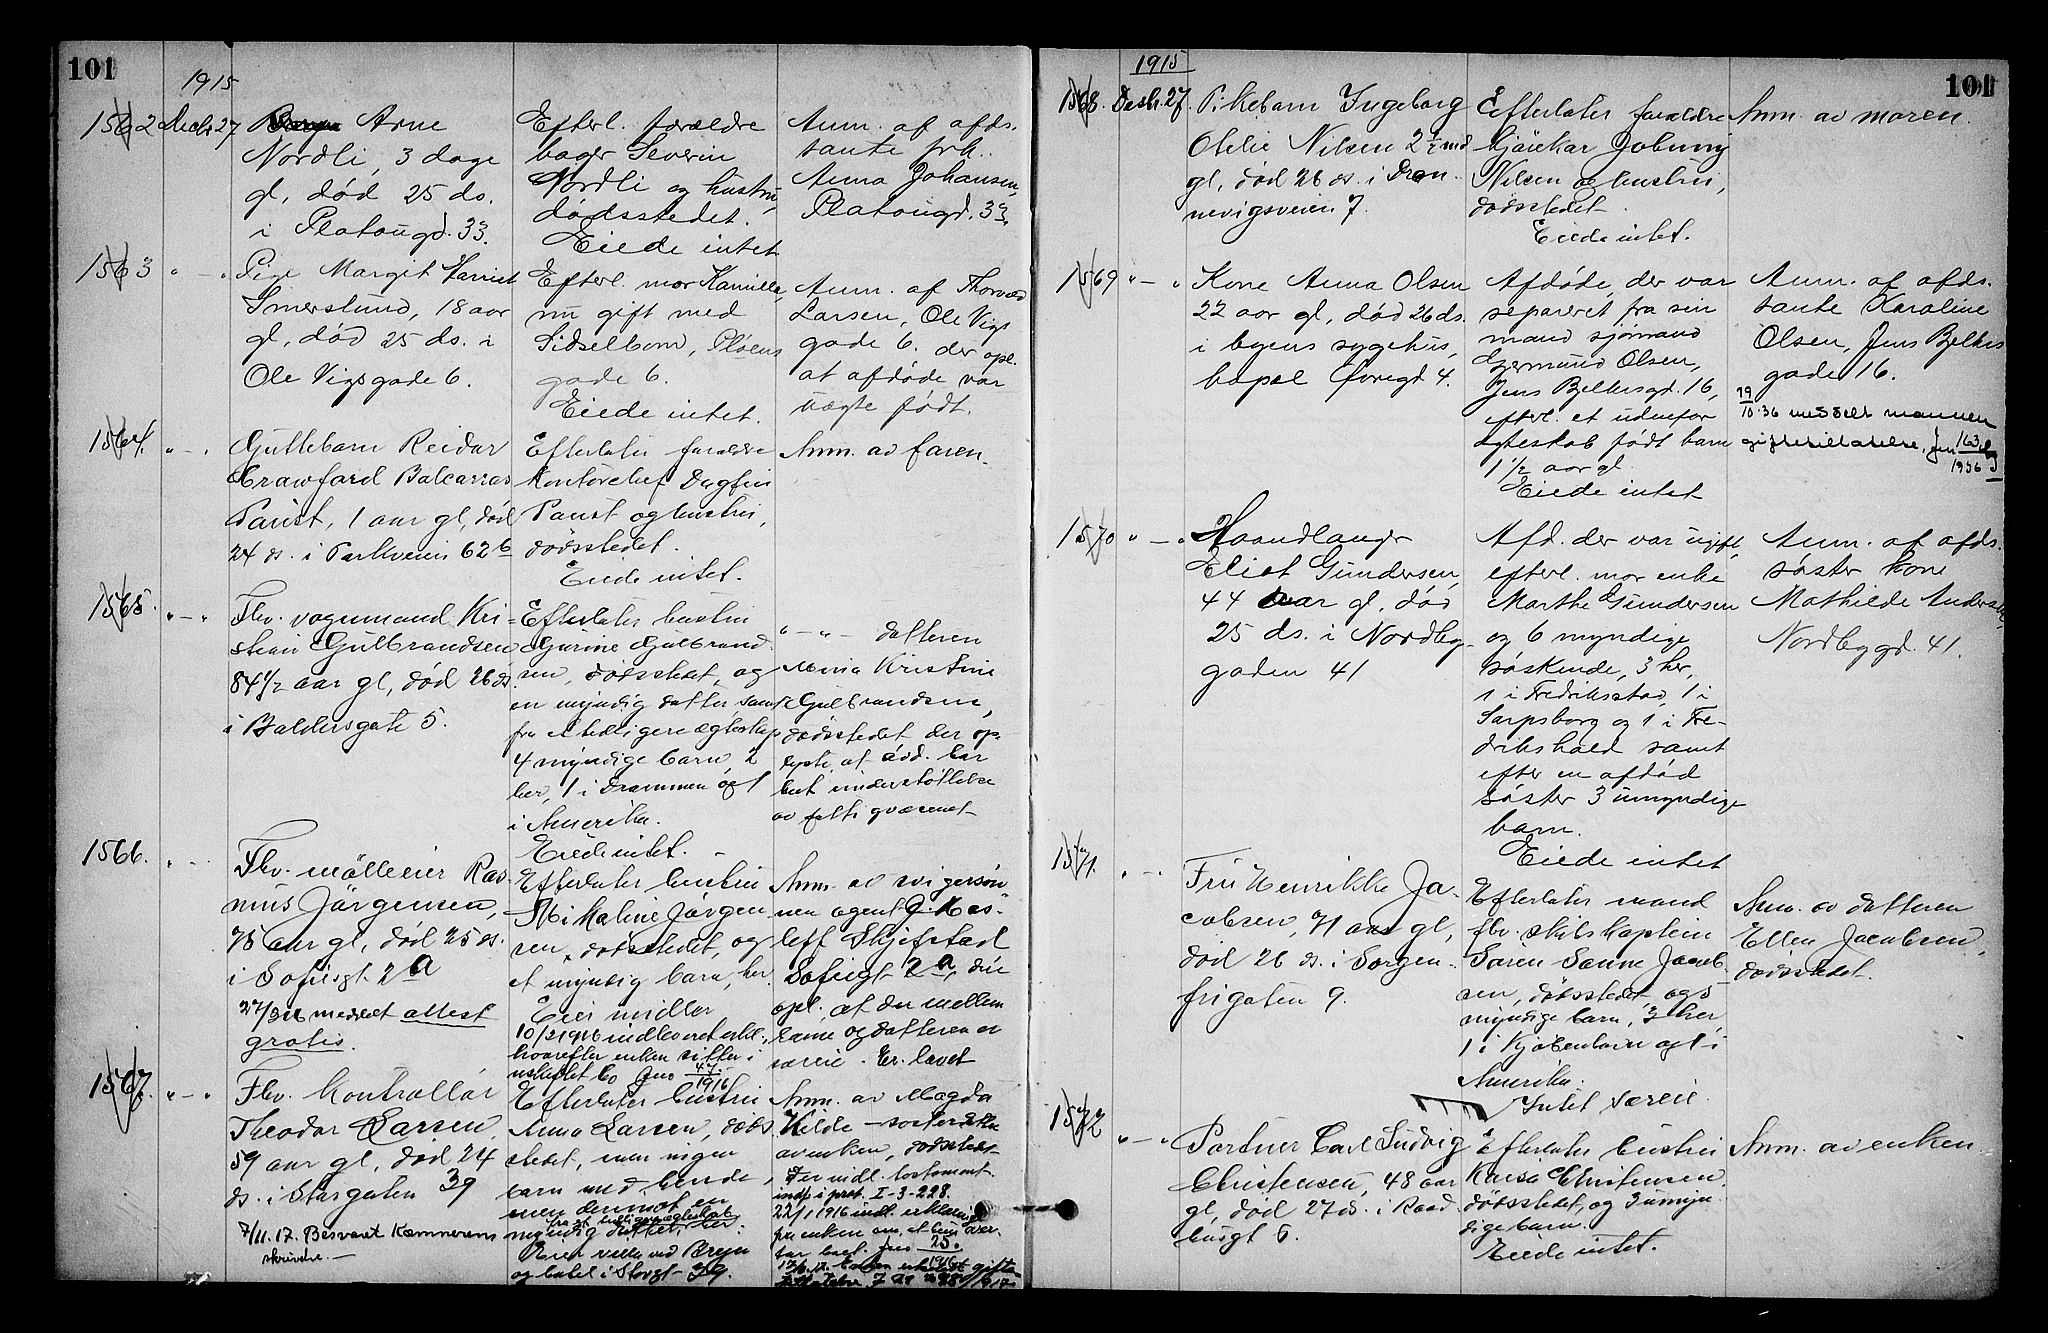 101
1915
1562
Decbr 27
Arne
Nordli, 3 dage
gl, död 25 ds.
i Platougd. 33.
Efterl. forældre
bager Severin
Nordli og hustru,
dödsstedet.
Eiede intet
Anm. af afds.
tante frk.
Anna Johansen,
Platougd. 33.
1563
" — "
Pige Margit Harriet
Smerslund, 18 aar
gl, död 25 ds. i
Ole Vigsgade 6.
Efterl. mor Kamilla,
nu gift med
Sidselbom, Pløens
gade 6.
Eiede intet.
Anm. af Thorvald
Larsen, Ole Vigs
gade 6. der opl.
at afdöde var
uægte födt.
1564.
" — "
Guttebarn Reidar
Crawfard Balcarras
Paust, 1 aar gl, död
24 ds. i Parkveien 62 b
Efterlater forældre
kontorchef Dagfin
Paust og hustru,
dödsstedet.
Eiede intet.
Anm. av faren.
1565.
" — "
Fhv. vognmand Kri-
stian Gulbrandsen
84 1/2 aar gl, död 26 ds.
i Baldersgate 5.
Efterlater hustru
Gurine Gulbrand-
sen, dödsstedet, og
en myndig datter, samt
fra et tidligere ægteskap
4 myndige barn, 2
her, 1 i Drammen og 1
i Amerika.
Eiede intet. —
" — " — datteren
Mina Kristine
Gulbrandsen,
dödsstedet der op-
lyste, at avd. har
hat understöttelse
av fattigvæsenet
1566.
" — "
Fhv. mölleeier Ras-
mus Jörgensen,
75 aar gl, död 25 ds.
i Sofiesgt. 2 a
27/3 16 meddelt attest
gratis.
Efterlater hustru
Mikaline Jörgen-
sen, dödsstedet, og
et myndig barn, her
Eier midler
10/2 1916 indleveret erkl.,
hvorefter enken sitter i
uskiftet bo Jno 47/1916
Anm. av svigersön-
nen agent J. Kas-
leff Skjefstad
Sofiesgt 2 a, der
opl. at der mellem
ham og datteren er
særeie. Er. lovet
1567.
" — "
Fhv. kontrollör
Theodor Larsen,
59 aar gl, död 24
ds. i Storgaten 39
7/11. 17. Besvaret Kæmnerens
skrivelse. —
Efterlater hustru
Anna Larsen, döds-
stedet, men ingen
barn med hende,
men derimot en
fra et tidligere ægteskab
myndig datter, her.
Eier villa ved Bryn
og hotel i Storgt. 39.
Anm. av Magda
Kilde — sösterdatter
av enken, dödsstedet.
Der indl. testament.
indf. i prot. I-3-228.
22/1 1916 indl. erklæring
fra enken om, at hun over-
tar boet. Jno 25./1916
101
1915
1568.
Desbr. 27.
Pikebarn Ingeborg
Otelie Nilsen 2 1/2 md
gl, död 26 ds. i Dron-
nevigsveien 7.
Efterlater forældre
kjörekar Johnny
Nilsen og hustru,
dödsstedet.
Eiede intet.
Anm. av moren.
1569
" — "
Kone Anna Olsen
22 aar gl, död 26 ds.
i byens sygehus,
bopæl Torvgd. 4.
Afdöde, der var
separeret fra sin
mand sjömand
Germund Olsen,
Jens Bjelkesgd. 16,
efterl. et udenfor
ægteskab födt barn
1 1/2 aar gl.
Eiede intet
Anm. af afds.
tante Karoline
Olsen, Jens Bjelkes
gade 16.
19/10.36 meddelt mannen
giftetillatelse, Jno 163/1936
1570
" — "
Haandlanger
Eliot Gundersen,
44 aar gl, död
25 ds. i Nordby-
gaden 41
Afd. der var ugift,
efterl. mor enke
Marthe Gundersen
og 6 myndige
söskende, 3 her,
1 i Fredriksstad, 1 i
Sarpsborg og 1 i Fre-
drikshald samt
efter en afdöd
söster 3 umyndige
barn.
Eiede intet
Anm. af afds.
söster kone
Mathilde Andersen,
Nordbygd. 41.
1571.
" — "
Fru Henrikke Ja-
cobsen, 71 aar gl,
död 26 ds. i Sorgen-
frigaten 9.
Efterlater mand
fhv. skibskaptein
Sören Sanne Jacob-
sen, dödsstedet, og 5
myndige barn, 3 her,
1 i Kjöbenhavn og 1 i
Amerika.
Intet særeie.
Anm. av datteren
Ellen Jacobsen,
dödsstedet.
1572
" — "
Portner Carl Ludvig
Christensen, 48 aar
gl, död 27 ds. i Raad-
husgt 6.
Efterlater hustru
Kaisa Christensen,
dödsstedet, og 3 umyn-
dige barn.
Eiede intet.
Anm. av enken